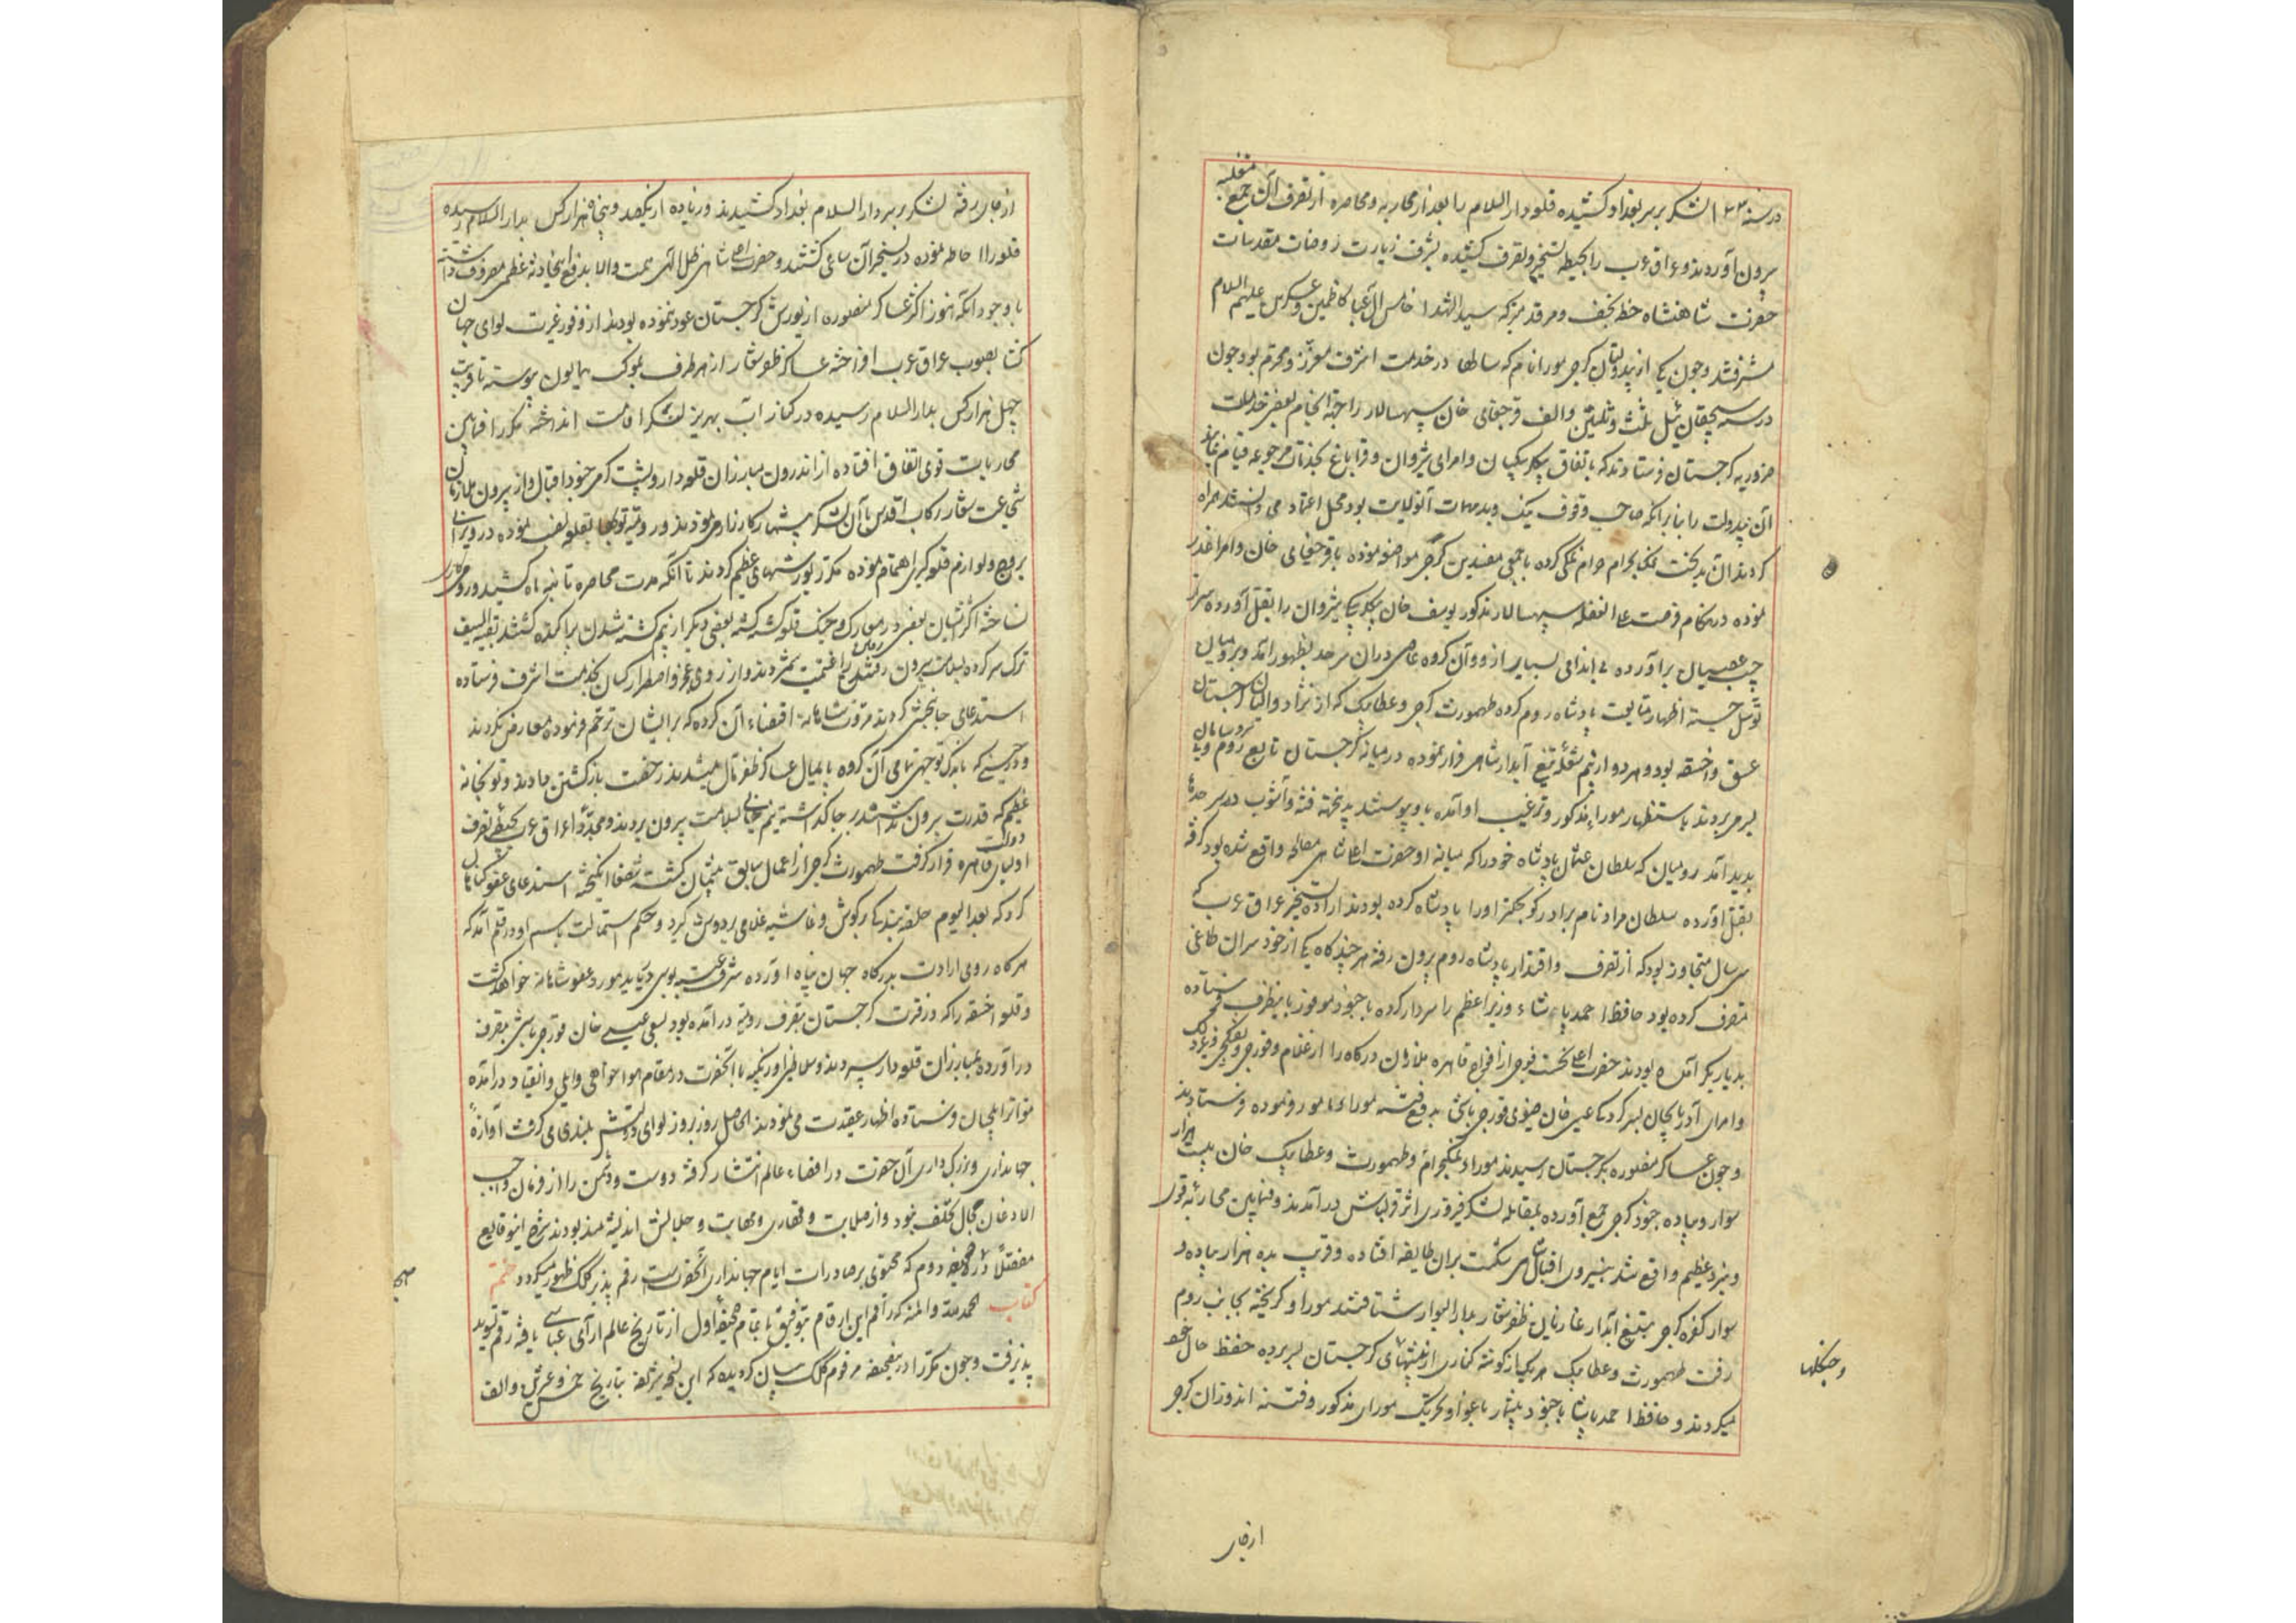 در سنه ۱۰۳۲ لشکر بر سر بغداد کشیده قلعه دارالسلام را بعد از محاربه و محاصره از تصرف آن جمع متغلبه
بیرون آوردند و عراق عرب را بحیطه تسخیر و تصرف کشیده بشرف زیارت روضات مقدسات
حضرت شاهنشاه خطه نجف و مرقد متبرکه سیدالشهدا خامس آل عبا کاظمین و عسکریین علیهم السلام
مشرف شد و چون یکی از بیدولتان گرجی موراو نام که سالها در خدمت اشرف معزز و محترم بود چون
در سنه سیچقان ئیل ثلث و ثلثین و الف قرچغای خان سپهسالار را جهة انجام بعضی خدمات
ضروریه گرجستان فرستادند که باتفاق بیگلربیگیان و امرای شیروان و قراباغ بخدمات مرجوعه قیام نمایند
آن بیدولت را بنابر آنکه صاحب وقوف نیک و بد مهمات آنولایت بود محل اعتماد می دانستند همراه
کردند آن بدبخت نمک بحرام حرام نمکی کرده با جمعی مفسدین گرجی مواضعه نموده با قرچغای خان و امرا غدر
نموده در هنگام فرصت علی الغفله سپهسالار مذکور یوسف خان بیگلربیگی شیروان را بقتل آورده سر از
جیب عصیان برآورده بی اندامی بسیار از او و آن گروه عاصی در آن سرحد بظهور آمد و برومیان
توسل جسته اظهار متابعت پادشاه روم کرده طهمورث گرجی و عطابیک که از نژاد والیان گرجستان
عتیق و اخسقه بود و هر دو از بیم شعله تیغ آبدار شاهی فرار نموده در میانه گرجستان تابع روم و بی سر و سامان
بسر می بردند باستظهار موراء مذکور و ترغیب او آمده باو پیوستند بدینجهة فتنه و آشوب در سرحدها
پدید آمد رومیان که سلطان عثمان پادشاه خود را که میانه او و حضرت اعلی شاهی مصالحه واقع شده بود گرفته
بقتل آورده سلطان مراد نام برادر کوچکتر او را پادشاه کرده بودند اراده تسخیر عراق عرب که
سی سال متجاوز بود که از تصرف و اقتدار پادشاه روم بیرون رفته هر چندگاه یکی از خودسران طاغی
متصرف کرده بود حافظ احمد پاشاء وزیر اعظم را سردار کرده با جنود موفور باینطرف فرستاده
بدیاربکر آمده بودند حضرت اعلی نخست فوجی از افواج قاهره ملازمان درگاه را از غلام و قورچی و تفنگچی و غیر ذلک
و امرای آذربایجان بسرکردگی عیسی خان صفوی قورچی باشی بدفع فتنه موراء مامور نموده فرستادند
و چون عساکر منصوره بگرجستان رسیدند موراو نمکبحرام و طهمورث و عطابیک خان بیست هزار
سوار و پیاده جنود گرجی جمع آورده بمقابله لشکر فیروزی اثر قزلباش درآمدند و فیمابین محاربه قوی
و نبرد عظیم واقع شد بنیروی اقبال شاهی شکست بر آن طایفه افتاده و قریب بده هزار پیاده و
سوار کفره گرجی بتیغ آبدار غازیان ظفر شعار بدارالبوار شتافتند موراو گریخته بجانب روم
رفت طهمورث و عطابیک هر یک از گوشه کناری از بیشهای گرجستان بسر برده حفظ حال خود
و جنگلها
میکردند و حافظ احمد پاشا با جنود بیشمار باغوا و تحریک موراو مذکور و فتنه اندوزان گرجی
ارجای
از جای رفته لشکر بر سر دارالسلام بغداد کشیدند و زیاده از یکصد و پنجاه هزار کس بدارالسلام رسیده
قلعه را احاطه نموده در تسخیر آن ساعی گشتند و حضرت اعلی شاهی ظل الهی همت والا بدفع این حادثه عظمی مصروف داشته
با وجود آنکه هنوز اکثر عساکر منصوره از یورش گرجستان عود ننموده بودند از وفور غیرت لوای جهان
گشا بصوب عراق عرب افراخته عساکر ظفر شعار از هر طرف بموکب همایون پیوسته تا قریب
چهل هزار کس بدارالسلام رسیده در کنار آب بهریز لنگر اقامت انداخته مکررا فیمابین
محاربات قوی اتفاق افتاده از اندرون مبارزان قلعه دار و پشت گرمی جنود اقبال و از بیرون ملازمان
شجاعت شعار رکاب اقدس با آن لشکر بیشمار کارزار می نمودند و رومیه توپها بقلعه نصب نموده در ویرانی
بروج و لوازم قلعه گیری اهتمام نموده مکرر یورشهای عظیم کردند تا آنکه مدت محاصره تا نه ماه کشید و رومیه کاری
نساخته اکثر ایشان بعضی در معارک و جنگ قلعه کشته گشته بعضی دیگر از بیم کشته شدن پراکنده گشتند بقیه السیف
ترک سر کرده بسلامت بیرون رفتن را غنیمت شمردند و از روی عجز و اضطرار کسان بخدمت اشرف فرستاده
استدعای جان بخشی کردند مروت شاهانه اقتضاء آن کرده که بر ایشان ترحم فرموده معارض نگردند
و در حینی که باندک توجهی تمامی آن گروه پایمال عساکر ظفر مآل میشدند رخصت بازگشتن دادند و توپخانه
عظیم که قدرت بیرون بردن نداشتند بر جا گذاشته نیم جانی بسلامت بیرون بردند و مجددا عراق عرب بحیطه تصرف
اولیای دولت قاهره قرار گرفت طهمورث گرجی از اعمال سابق پشیمان گشته شفعا انگیخته استدعای عفو گناهان
کرد که بعد الیوم حلقه بندگی در گوش و غاشیه غلامی بر دوش گیرد و حکم استمالت باسم او در قلم آمد که
هرگاه روی ارادت بدرگاه جهان پناه آورده شرف عتبه بوسی دریابد مورد عفو شاهانه خواهد گشت
و قلعه اخسقه را که در فترت گرجستان بتصرف رومیه درآمده بود بسعی عیسی خان قورچی باشی بتصرف
درآورده بمبارزان قلعه دار سپردند و سلاطین اوزبکیه با آنحضرت در مقام هواخواهی و ایلی و انقیاد درآمده
متواتر ایلچیان فرستاده اظهار عقیدت می نمودند الحاصل روز بروز لوای دولتش بلندی می گرفت آوازهٔ
جهانداری و بزرگ داری آن حضرت در اقصاء عالم انتشار گرفته دوست و دشمن را از فرمان واجب
الاذعان مجال تخلف نبود و از صلابت و قهاری و مهابت و جلالتش اندیشه مند بودند شرح این وقایع
مفصلا در صحیفه دوم که محتوی بر صادرات ایام جهانداری آنحضرتست رقم پذیر کلک ظهور میگردد ختم
کتاب الحمدلله و المنه که راقم این ارقام بتوفیق باتمام صحیفه اول از تاریخ عالم آرای عباسی یافته رقم تسوید
پذیرفت و چون مکررا در صحیفه مرقوم کلک بیان گردیده که این نسخه شریفه بتاریخ خمس و عشرین و الف